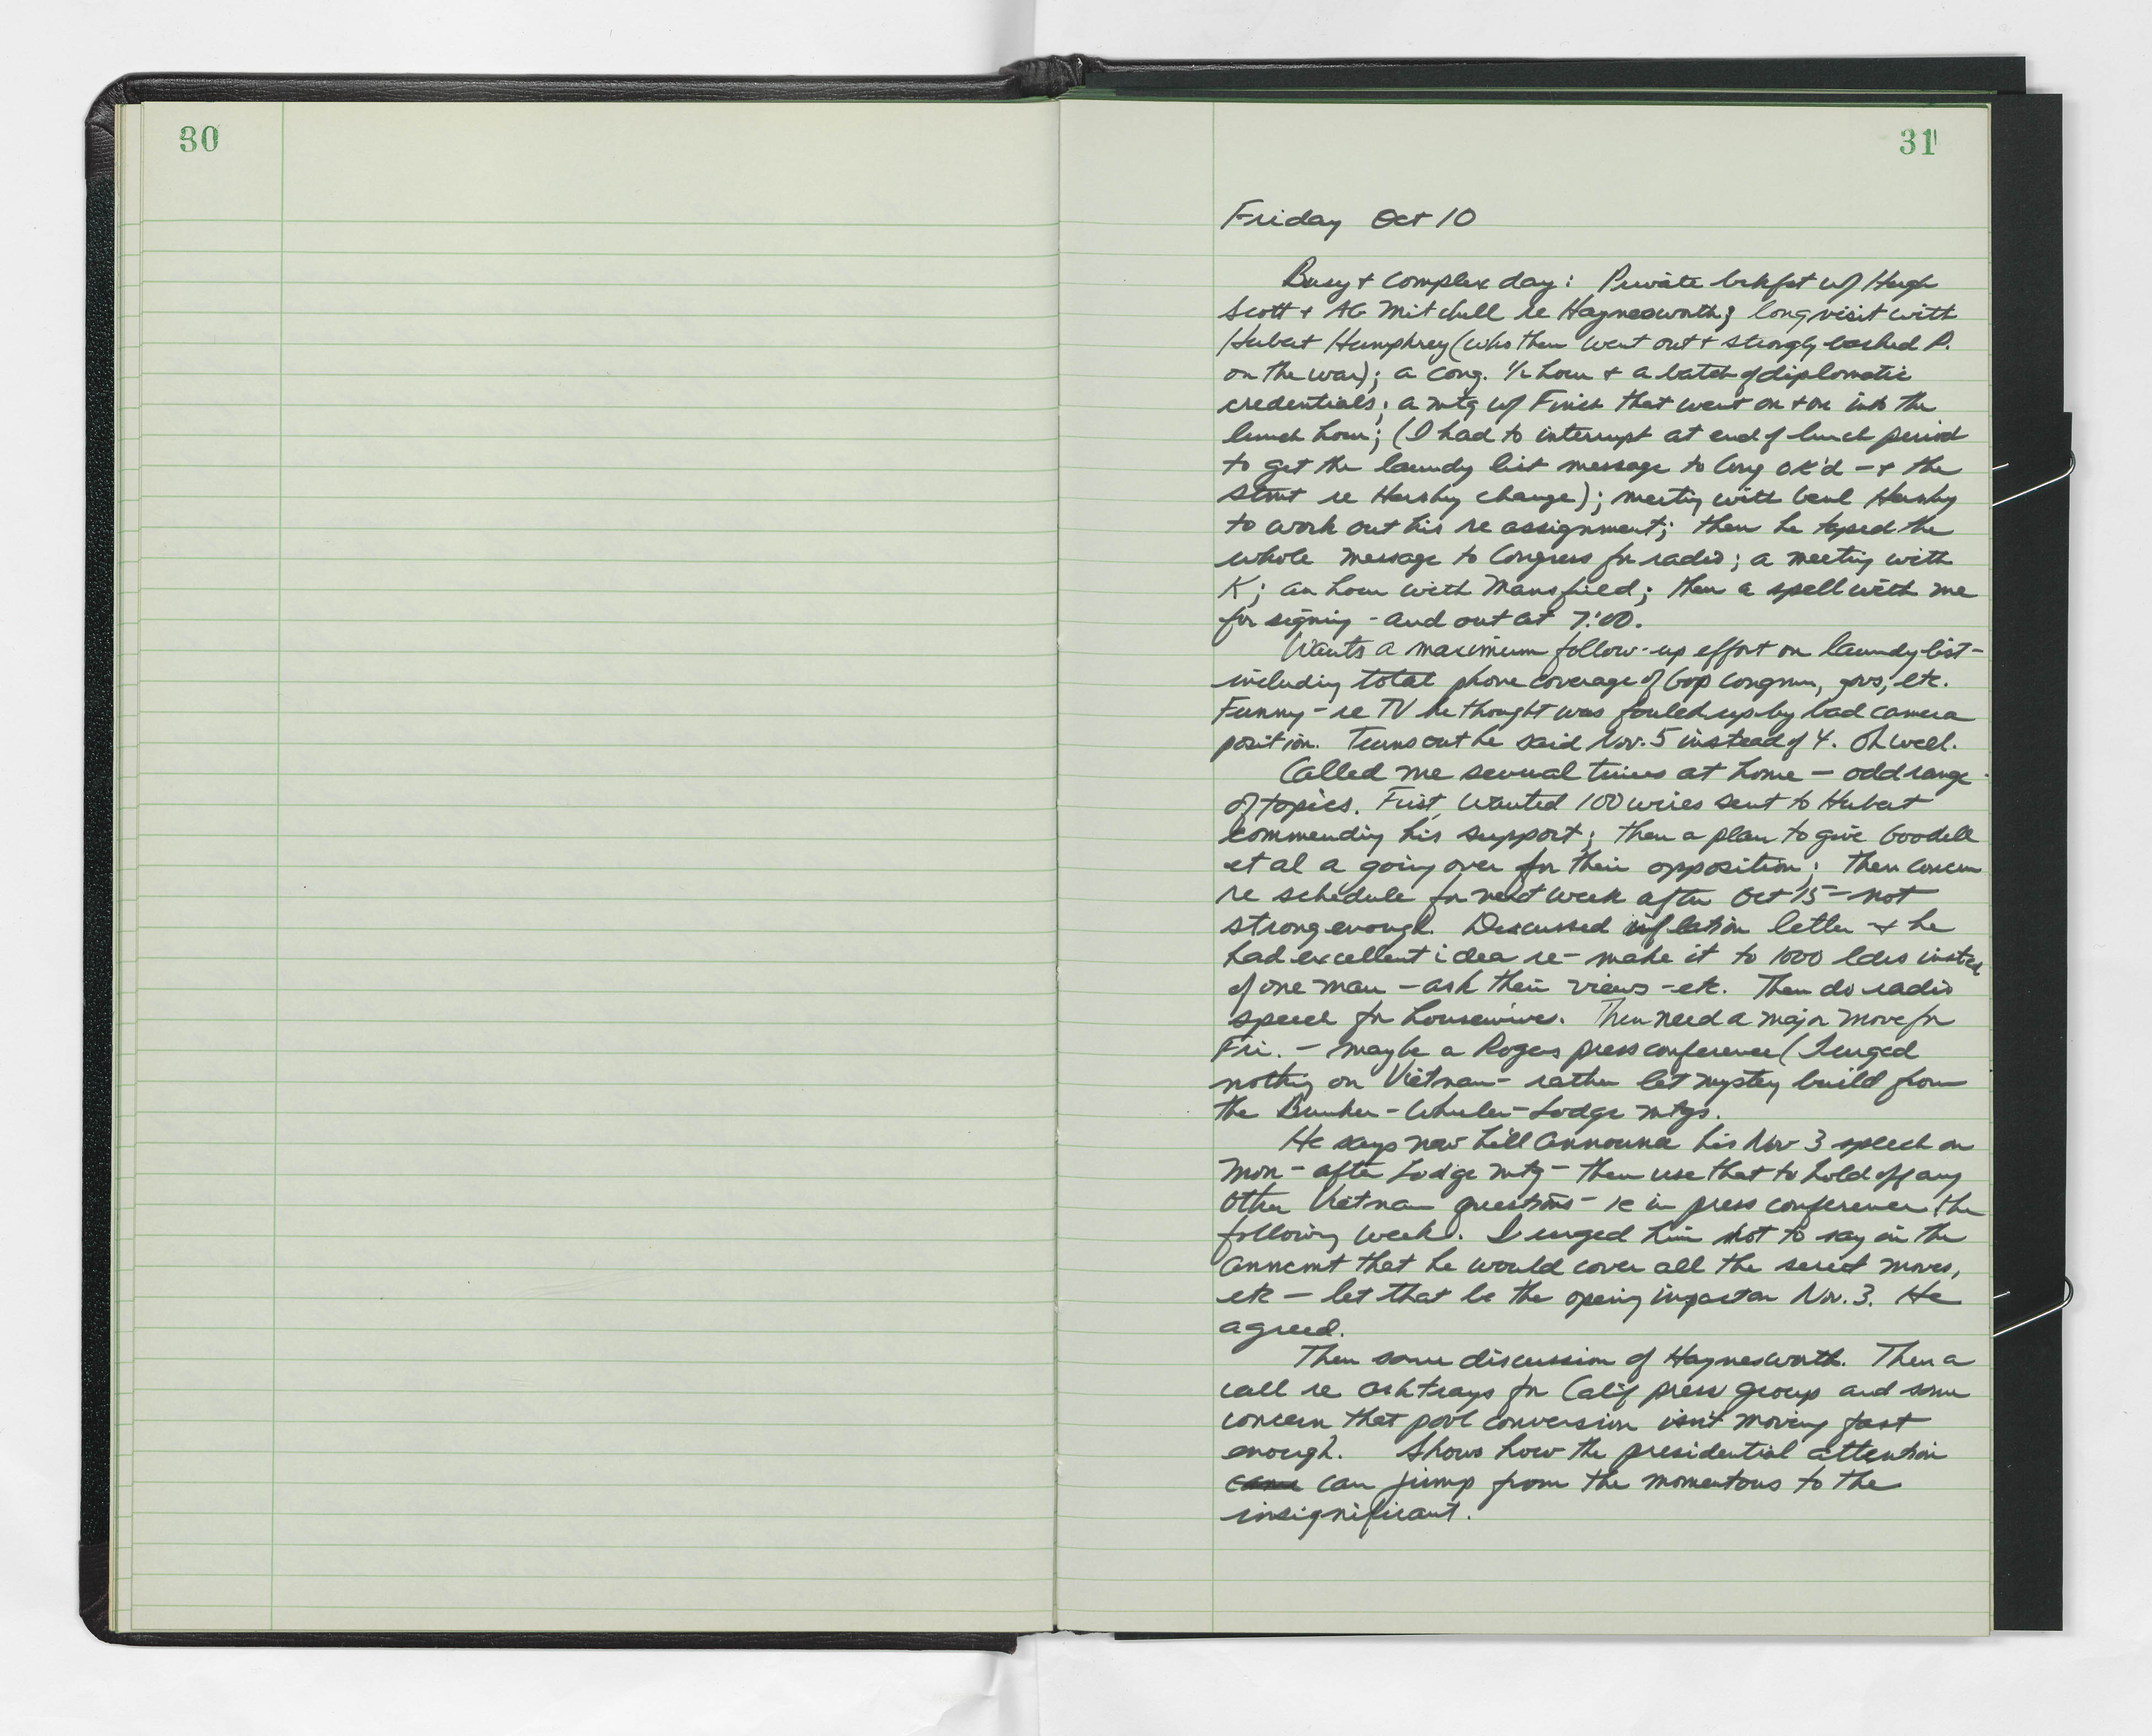 30
31
Friday Oct 10
Busy + complex day: Private brkfst w/ Hugh
Scott + AG Mitchell re Haynesworth; long visit with
Hubert Humphrey (who then went out + strongly backed P.
on the war); a cong. 1/2 hour + a batch of diplomatic
credentials; a mtg w/ Finch that went on + on into the
lunch hour; (I had to interrupt at end of lunch period
to get the laundry list message to Cong OK'd — + the
stmt re Hershy change); meeting with Genl Hershy
to work out his re assignment; then he taped the
whole message to Congress for radio; a meeting with
K; an hour with Mansfield; then a spell with me
for signing - and out at 7:00.
Wants a maximum follow-up effort on laundry list -
including total phone coverage of GOP congmn, govs, etc.
Funny - re TV he thought was fouled up by bad camera
position. Turns out he said Nov. 5 instead of 4. Oh well.
Called me several times at home — odd range
of topics. First, wanted 100 wires sent to Hubert
commending his support; then a plan to give Goodell
et al a going over for their opposition; then concern
re schedule for next week after Oct 15 — not
strong enough. Discussed inflation letter - + he
had excellent idea re - make it to 1000 ldrs instead
of one man - ask their views - etc. Then do radio
speech for housewives. Then need a major move for
Fri. - maybe a Rogers press conference (I urged
nothing on Vietnam - rather let mystery build from
the Bunker - Wheeler - Lodge mtgs.
He says now he'll announce his Nov 3 speech on
Mon - after Lodge mtg - then use that to hold off any
other Vietnam questions - ie in press conference the
following week. I urged him not to say in the
anncmt that he would cover all the secret moves,
etc — let that be the opening impact on Nov. 3. He
agreed.
Then some discussion of Haynesworth. Then a
call re ashtrays for Calif press group and some
concern that pool conversion isn't moving fast
enough. Shows how the presidential attention
can jump from the momentous to the
insignificant.